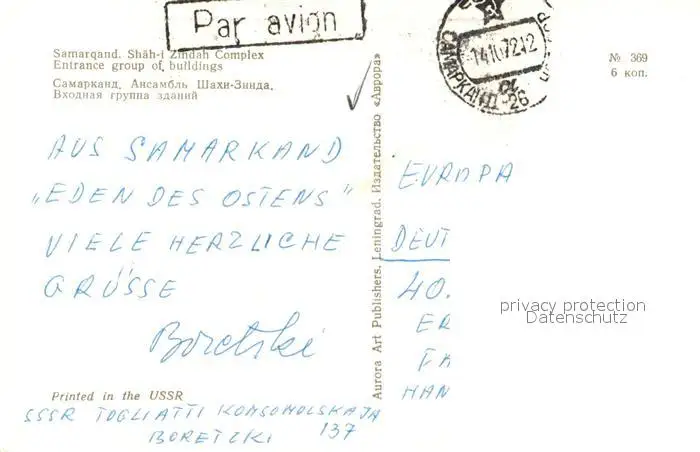 Par avion
САМАРКАНД-26
Samarqand. Shāh-i Zindah Complex
Entrance group of buildings
Самарканд. Ансамбль Шахи-Зинда.
Входная группа зданий
№ 369
6 коп.
AUS SAMARKAND
„EDEN DES OSTENS"
VIELE HERZLICHE
GRÜSSE
Boretzki
Printed in the USSR
SSSR TOGLIATTI KOMSOMOLSKAJA
BORETZKI 137
Aurora Art Publishers. Leningrad. Издательство «Аврора»
EUROPA
DEUT
40.
ER
FA
HAN
privacy protection
Datenschutz